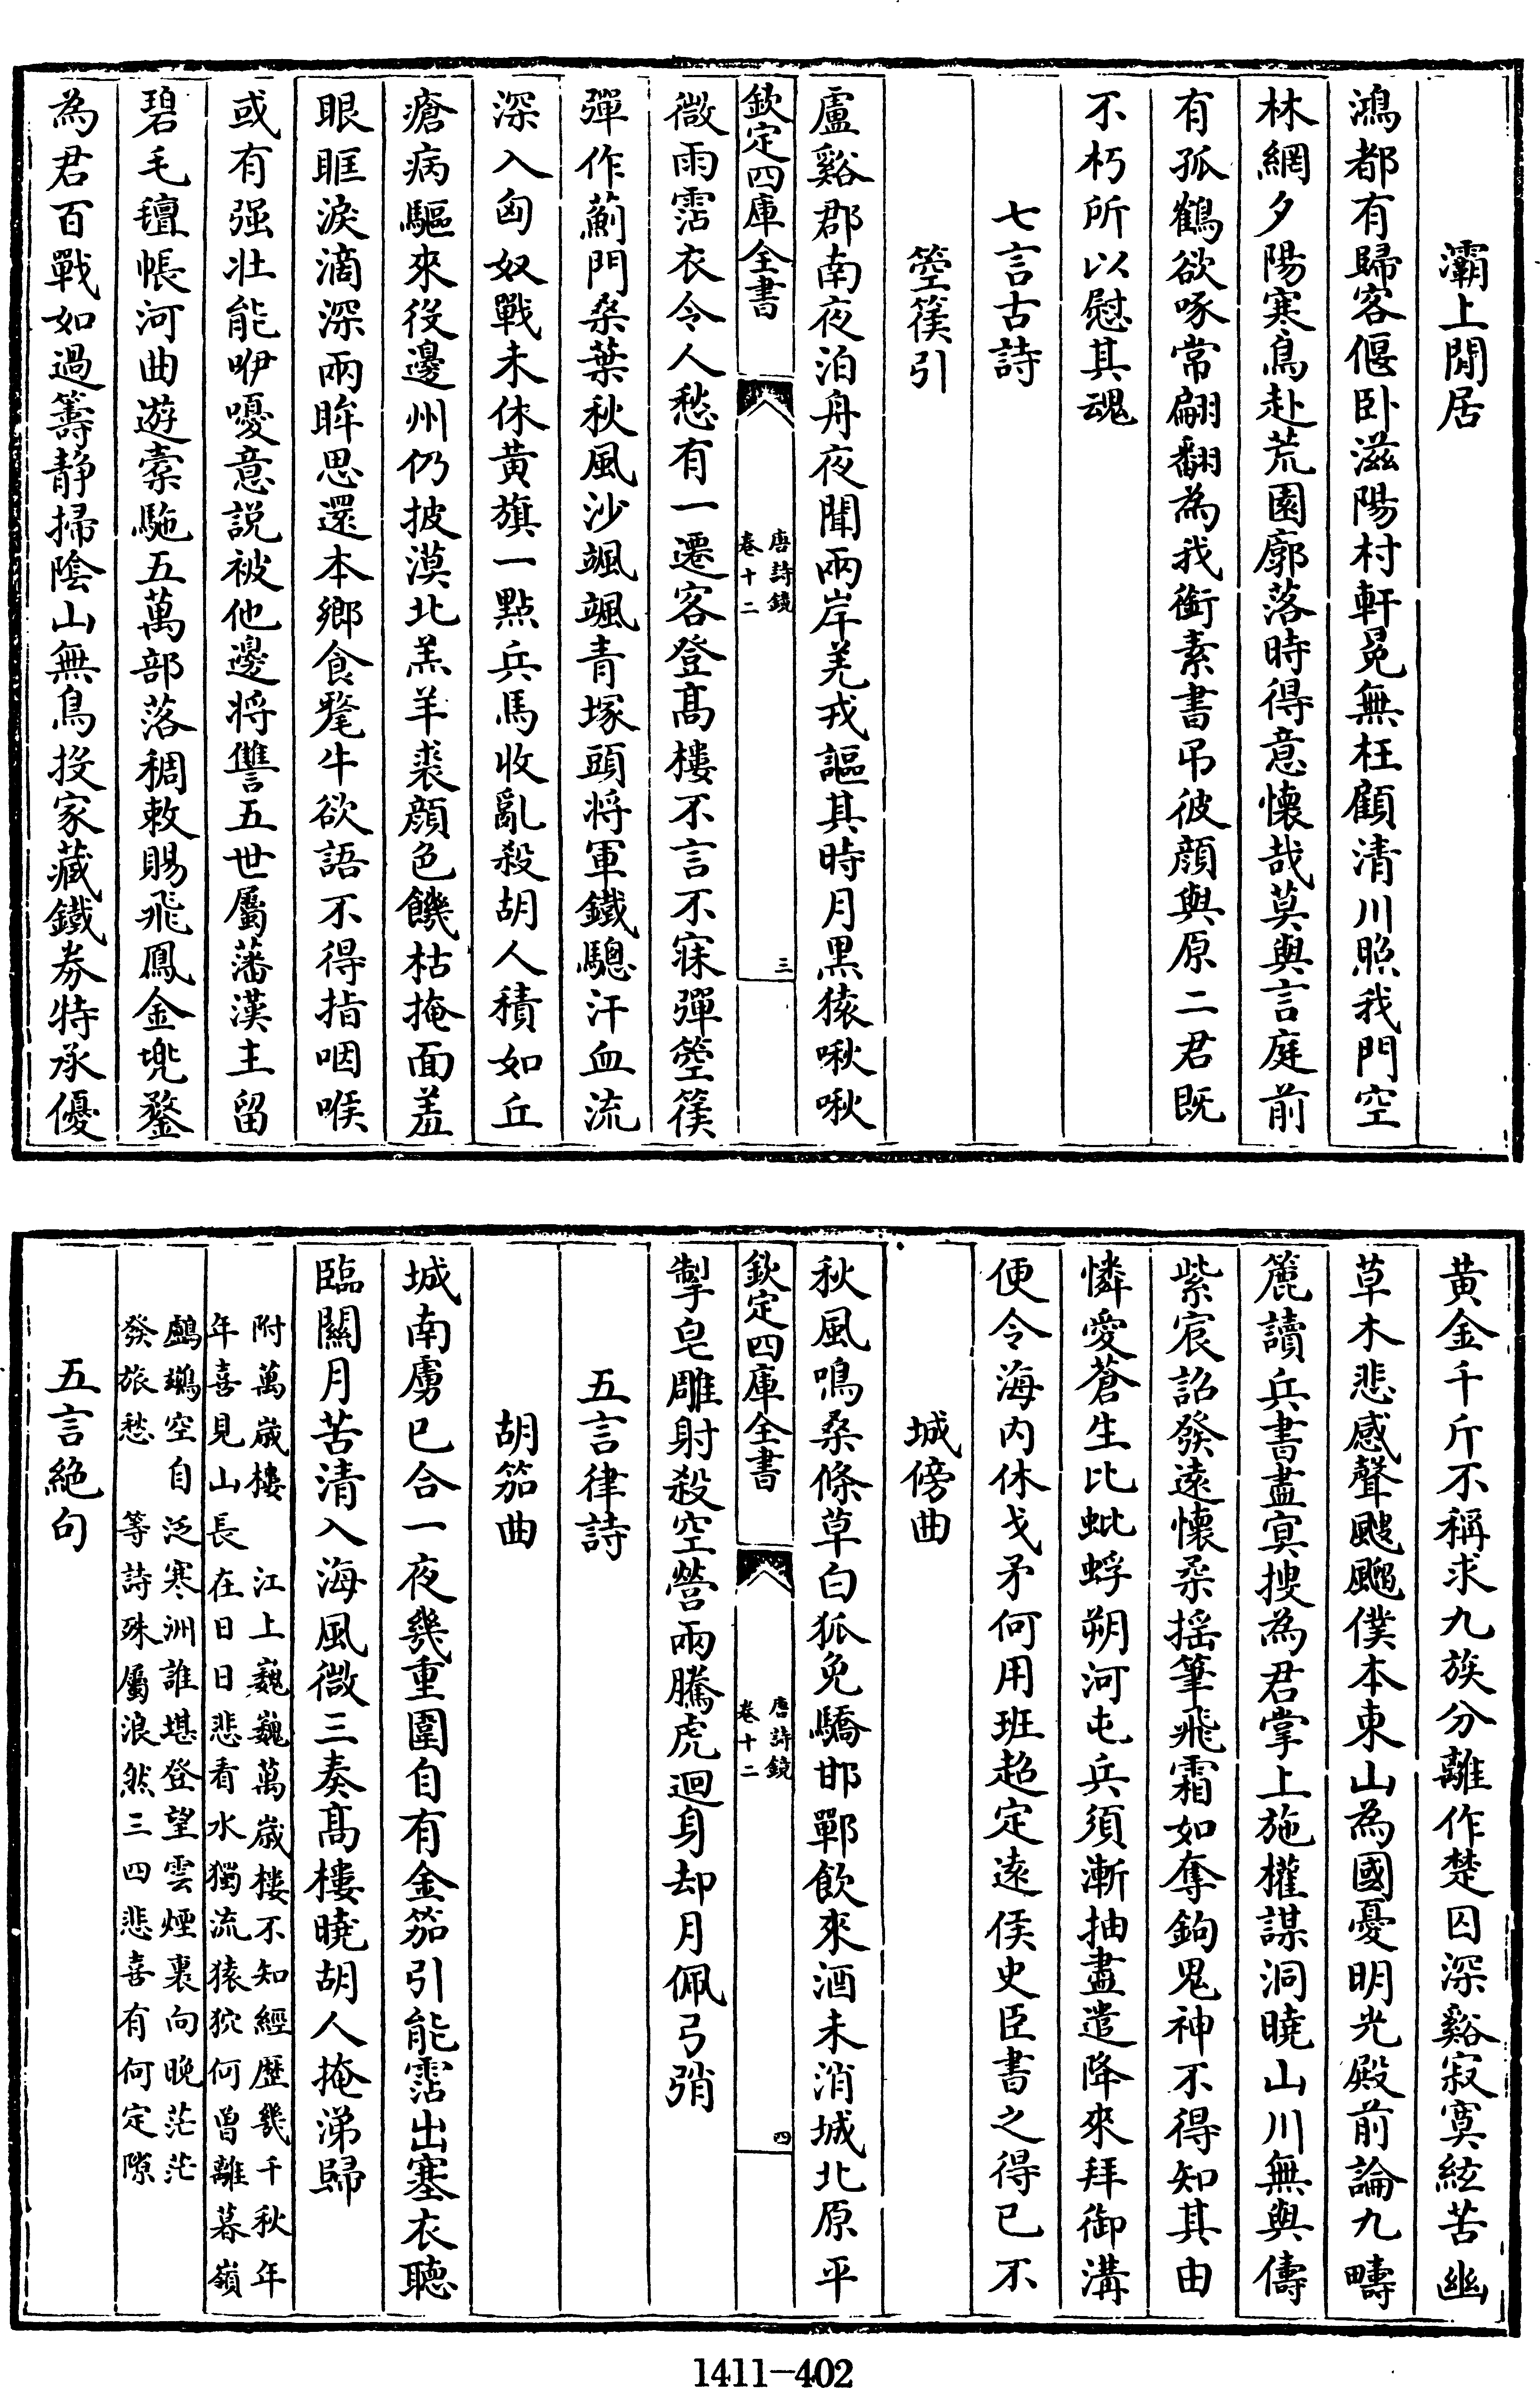 灞上閒居
鴻都有歸客偃臥滋陽村軒冕無枉顧清川照我門空
林網夕陽寒鳥赴荒園廓落時得意懷哉莫與言庭前
有孤鶴欲啄常翩翻為我銜素書吊彼顔與原二君既
不朽所以慰其魂
七言古詩
箜篌引
盧谿郡南夜泊舟夜聞兩岸羌戎謳其時月黑猿啾啾
欽定四庫全書
唐詩鏡
卷十二
三
微雨霑衣令人愁有一遷客登髙樓不言不寐彈箜篌
彈作薊門桑葉秋風沙颯颯青塚頭将軍鐵驄汗血流
深入匈奴戰未休黄旗一點兵馬收亂殺胡人積如丘
瘡病驅來役邊州仍披漠北羔羊裘顔色饑枯掩面羞
眼眶淚滴深兩眸思還本鄉食氂牛欲語不得指咽喉
或有强壯能咿嚘意説被他邊将讐五世屬藩漢主留
碧毛氊帳河曲遊橐駞五萬部落稠敕賜飛鳳金兜鍪
為君百戰如過籌静掃陰山無鳥投家藏鐵券特承優
黄金千斤不稱求九族分離作楚囚深谿寂寞絃苦幽
草木悲感聲颼飀僕本東山為國憂明光殿前論九疇
簏讀兵書盡冥搜為君掌上施權謀洞曉山川無與儔
紫宸詔發遠懷柔揺筆飛霜如奪鉤鬼神不得知其由
憐愛蒼生比蚍蜉朔河屯兵須漸抽盡遣降來拜御溝
便令海内休戈矛何用班超定遠侯史臣書之得已不
城傍曲
秋風鳴桑條草白狐兔驕邯鄲飲來酒未消城北原平
欽定四庫全書
唐詩鏡
卷十二
四
掣皂雕射殺空營兩騰虎迴身却月佩弓弰
五言律詩
胡笳曲
城南虜已合一夜幾重圍自有金笳引能霑出塞衣聴
臨關月苦清入海風微三奏髙樓曉胡人掩涕歸
附萬歲樓　江上巍巍萬歲樓不知經歴幾千秋年
年喜見山長在日日悲看水獨流猿狖何曾離暮嶺
鸕鷀空自泛寒洲誰堪登望雲煙裏向晚茫茫
發旅愁　等詩殊屬浪然三四悲喜有何定隙
五言絶句
1411-402